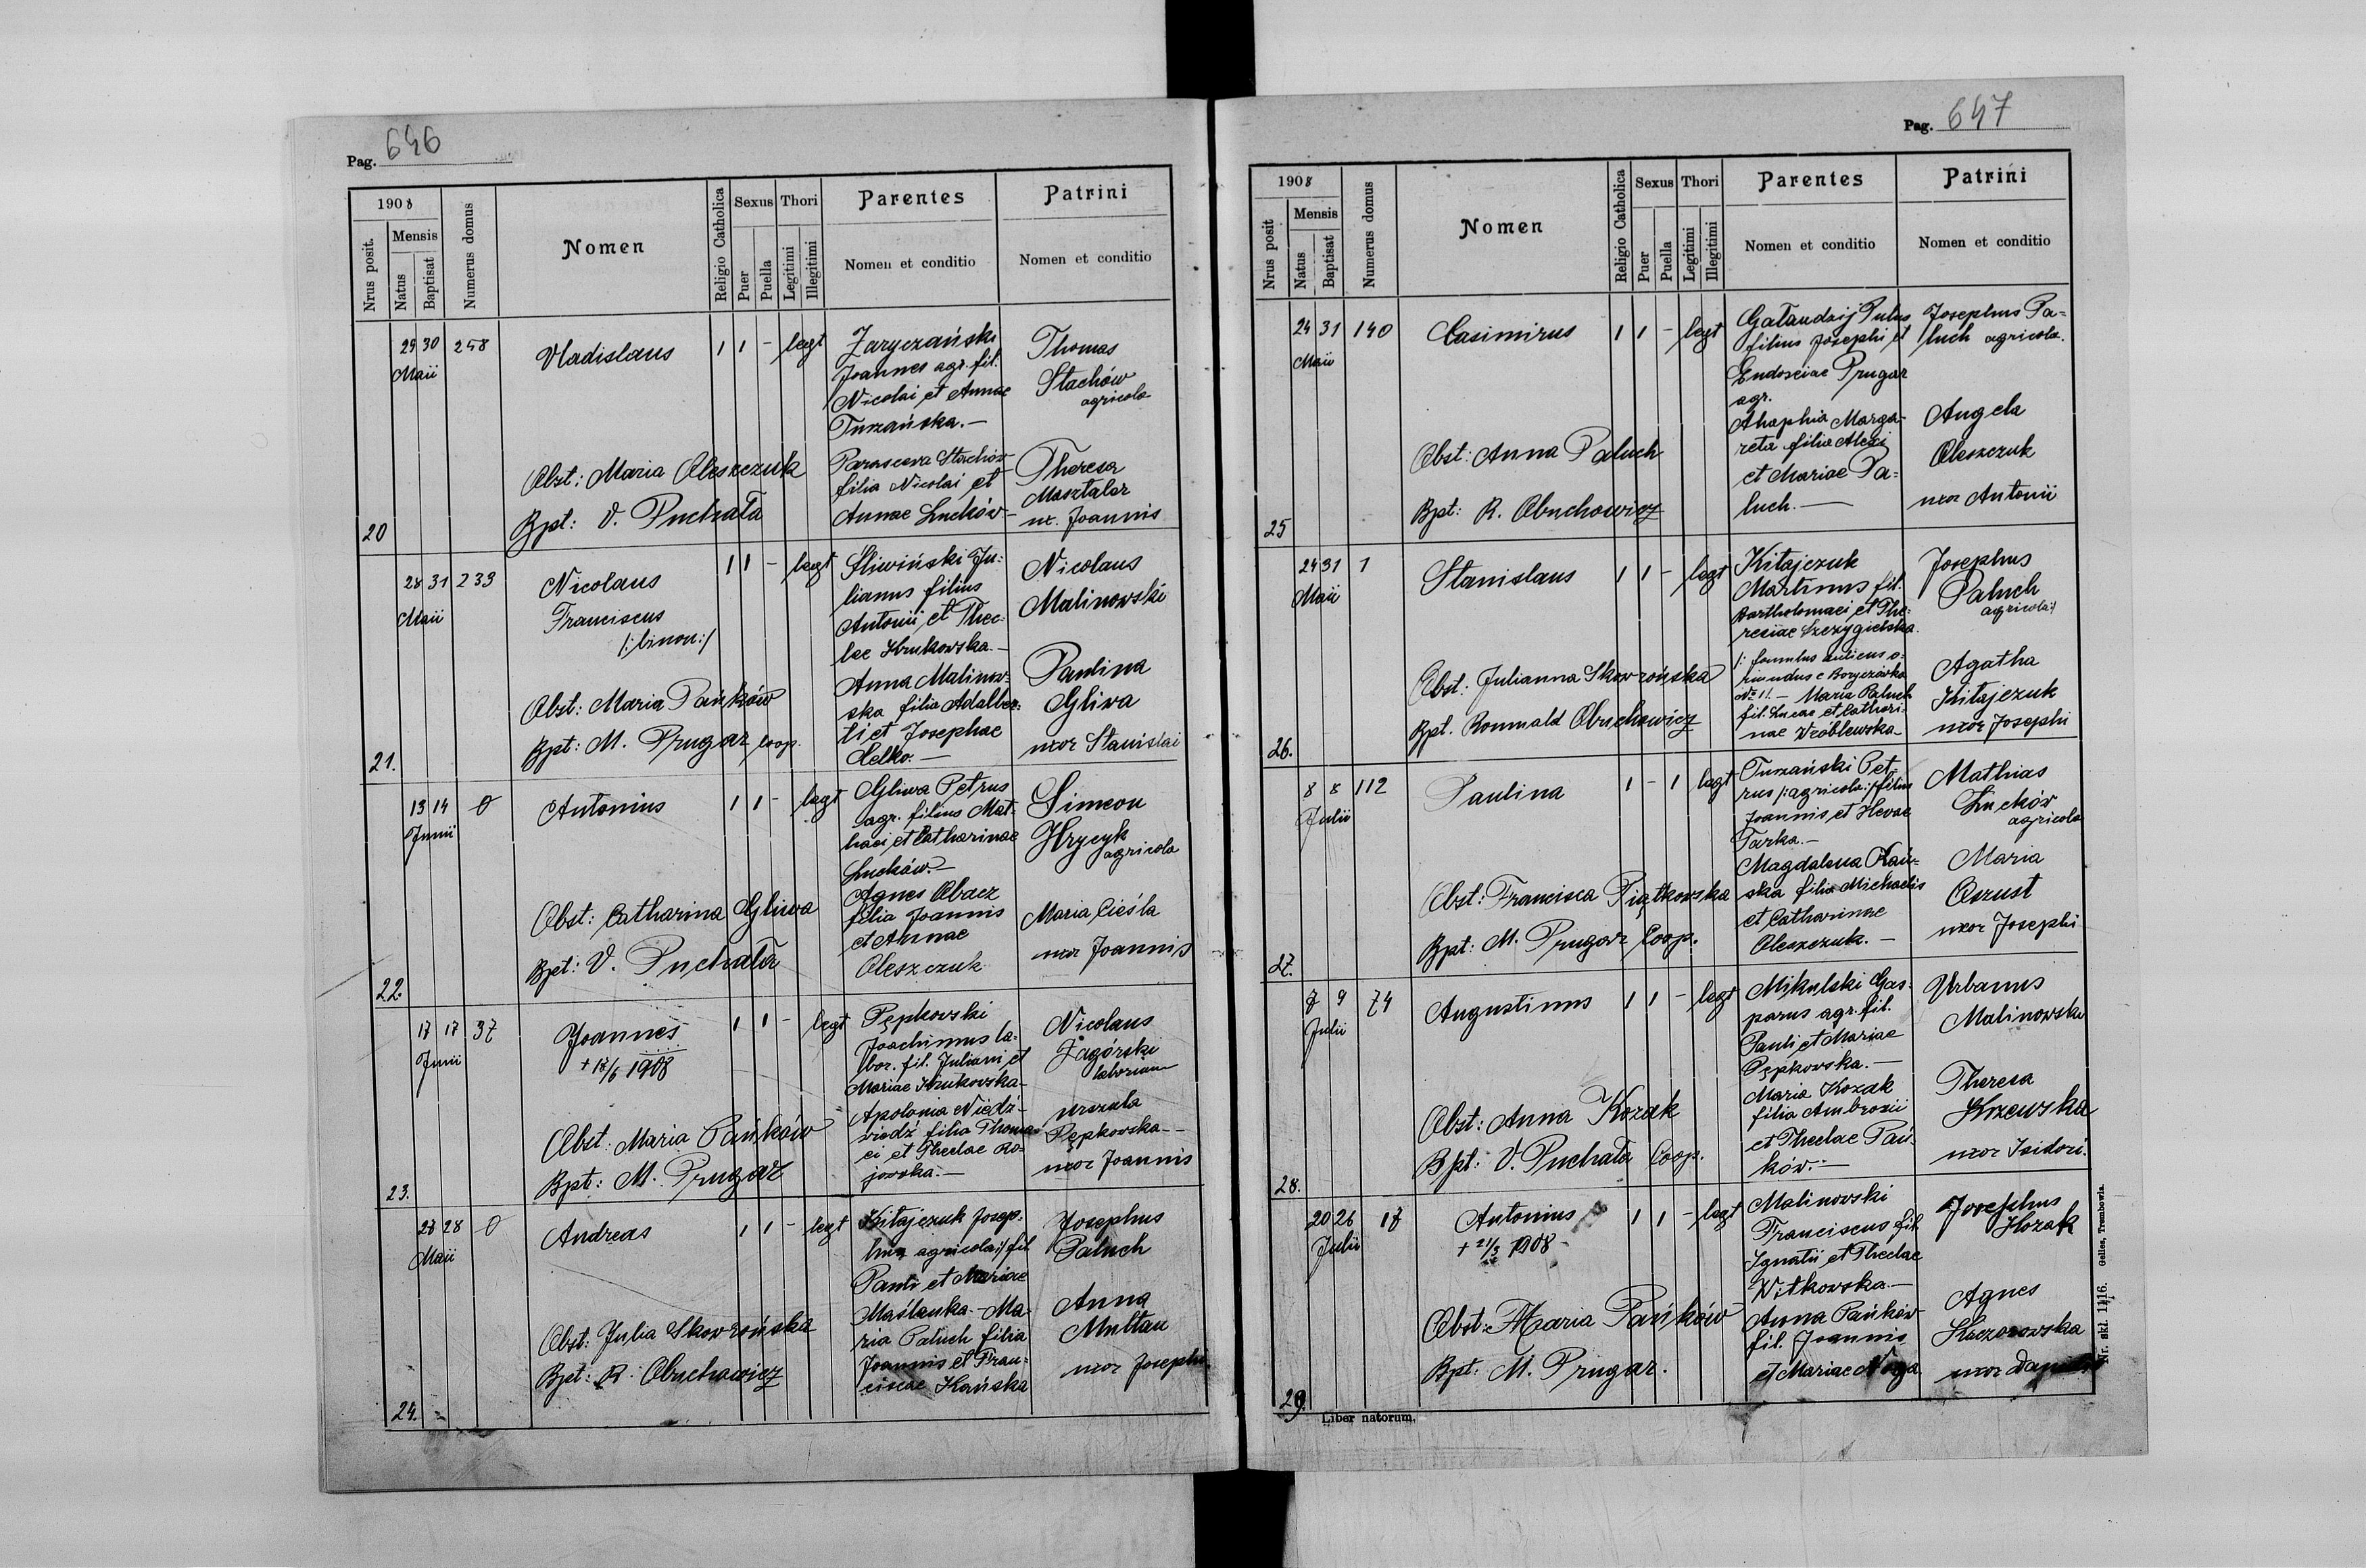 Pag. 646
1908
Nrus posit.
Mensis
Natus
Baptisat
Numerus domus
Nomen
Religio Catholica
Sexus
Puer
Puella
Thori
Legitimi
Illegitimi
Parentes
Nomen et conditio
Patrini
Nomen et conditio
20
29 30 258
Maii
Vladislaus
1 1 - legt
Obst: Maria Oleszczuk
Bpt: V. Puchała
Zaryczański
Joannes agr. fil.
Nicolai et Annae
Tumańska.—
Parasceva Stachów
filia Nicolai et
Annae Luckór—
Thomas
Stachów
agricola
Theresa
Masztalar
ux. Joannis
21.
28 31 233
Maii
Nicolaus
Franciscus
/:binom:/
1 1 - legt
Obst: Maria Pańków
Bpt: M. Prugar coop.
Śliwiński Ju:
lianus filius
Antonii et Thec:
lae Krukowska.—
Anna Malinow-
ska filia Adalber:
ti et Josephae
Lelko.—
Nicolaus
Malinowski
Paulina
Gliwa
uxor Stanislai
22.
13 14 0
Junii
Antonius
1 1 - legt
Obst: Catharina Gliwa
Bpt: V. Puchała
Gliwa Petrus
agr. filius Mat-
haei et Catharinae
Lucków.—
Agnes Obacz
filia Joannis
et Annae
Oleszczuk
Simeon
Hrycyk
agricola
Maria Cieśla
uxor Joannis
23.
17 17 37
Junii
Joannes
+ 18/6 1908
1 1 - legt
Obst: Maria Pańków
Bpt: M. Prugar
Pępkovski
Joachimus la-
bor. fil. Juliani et
Mariae Krukovska—
Apolonia Niedź-
viedź filia Thoma-
ei et Theclae Ro-
jovska.—
Nicolaus
Zagórski
Urszula
Pępkovska—
uxor Joannis
24.
28 28 0
Maii
Andreas
1 1 - legt
Obst: Julia Skowrońska
Bpt: R. Obuchowicz
Kitajczuk Josep-
hus agricola:/ fil.
Pauli et Mariae
Maślanka.— Ma-
ria Paluch filia
Joannis et Fran-
ciscae Kańska
Josephus
Paluch
Anna
Multan
uxor Josephi
Pag. 647
1908
Nrus posit
Mensis
Natus
Baptisat
Numerus domus
Nomen
Religio Catholica
Sexus
Puer
Puella
Thori
Legitimi
Illegitimi
Parentes
Nomen et conditio
Patrini
Nomen et conditio
25
24 31 140
Maii
Casimirus
1 1 - legt
Obst: Anna Paluch
Bpt: R. Obuchowicz
Gałandzij
filius Josephi et
Eudosciae Prugar
agr.
Ahaphia Marga-
reta filia Alexi
et Mariae Pa-
luch.—
Josephus Pa-
luch agricola.
Angela
Oleszczuk
uxor Antonii
26.
24 31 1
Maii
Stanislaus
1 1 - legt
Obst: Julianna Skowrońska
Bpt. Romuald Obuchowicz
Kitajczuk
Martinus fil.
Bartholomaei et The-
resiae Szczygielska.
/: famulus aulicus o-
riundus e Boryczówka
No 1/. — Maria Paluch
fil. Lucae et Cathari-
nae Wróblewska—
Josephus
Paluch
agricola:/
Agatha
Kitajczuk
uxor Josephi
27.
8 8 112
Julii
Paulina
1 - 1 legt
Obst: Francisca Piątkowska
Bpt: M. Prugar Coop.
Tumański Pet-
rus /:agricola:/ filius
Joannis et Hevae
Tarka.—
Magdalena Kań-
ska filia Michaelis
et Catharinae
Oleszczuk.—
Mathias
Lucków
agricola
Maria
uxor Josephi
28.
7 9 74
Julii
Augustinus
1 1 - legt
Obst: Anna Kozak
Bpt: V. Puchała Coop.
Mikulski Gas-
parus agr. fil.
Pauli et Mariae
Pępkovska.—
Maria Kozak
filia Ambrosii
et Theclae Pań-
ków.—
Urbanus
Malinowski
Theresa
uxor Isidori.
29.
20 26 17
Julii
Antonius
+ 21/3 1908
1 1 - legt
Obst: Maria Pańków
Bpt: M. Prugar.
Malinovski
Franciscus fil.
Ignatii et Theclae
Witkovska.—
Anna Pańków
fil. Joannis
et Mariae Noga
Josephus
Kozak
Agnes
uxor
Liber natorum.
Nr. skł. 1116. Galles, Trembowla.